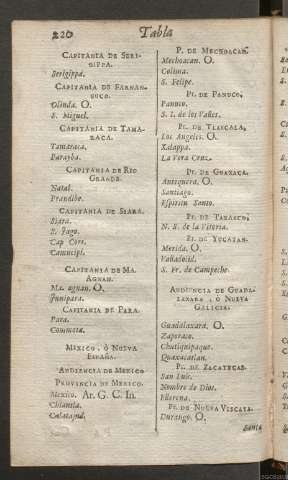 220
Tabla
CAPITANIA DE SERI-
GIPPA.
Serigippa.
CAPITANIA DE FERNAN-
BUCO.
Olinda. O.
S. Miguel.
CAPITANIA DE TAMA-
RACA.
Tamaraca.
Parayba.
CAPITANIA DE RIO
GRANDE.
Natal.
CAPITANIA DE SIARA.
Siara.
S. Jago.
Camucipi.
CAPITANIA DE MA-
AGNAN.
Ma agnan. O.
Junipara.
CAPITANIA DE PARA.
Para.
Commota.
MEXICO, ò NUEVA
ESPAÑA.
AUDIENCIA DE MEXICO
PROVINCIA DE MEXICO.
Mexico. Ar. G. C. In.
Chiantla.
P. DE MECHOACAN.
Mechoacan. O.
Colima.
S. Felipe.
Pr. DE PANUCO.
Panuco.
S. I. de los Valles.
Pr. DE TLASCALA.
Los Angeles. O.
Xalappa.
La Vera Cruz.
Pr. DE GUAXACA.
Antequera. O.
Santiago.
Espiritu Santo.
Pr. DE TABASCO.
N. S. de la Vitoria.
Pr. DE YUCATAN.
Merida. O.
Valladolid.
S. Fr. de Campeche.
AUDIENCIA DE GUADA-
LAXARA, ò NUEVA
GALICIA.
Guadalaxara. O.
Chutiquipaque.
Quaxacatlan.
Pr. DE ZACATECAS.
San Luis.
Nombre de Dios.
Ellerena.
Pr. DE NUEVA VISCAYA.
Durango. O.
Santa